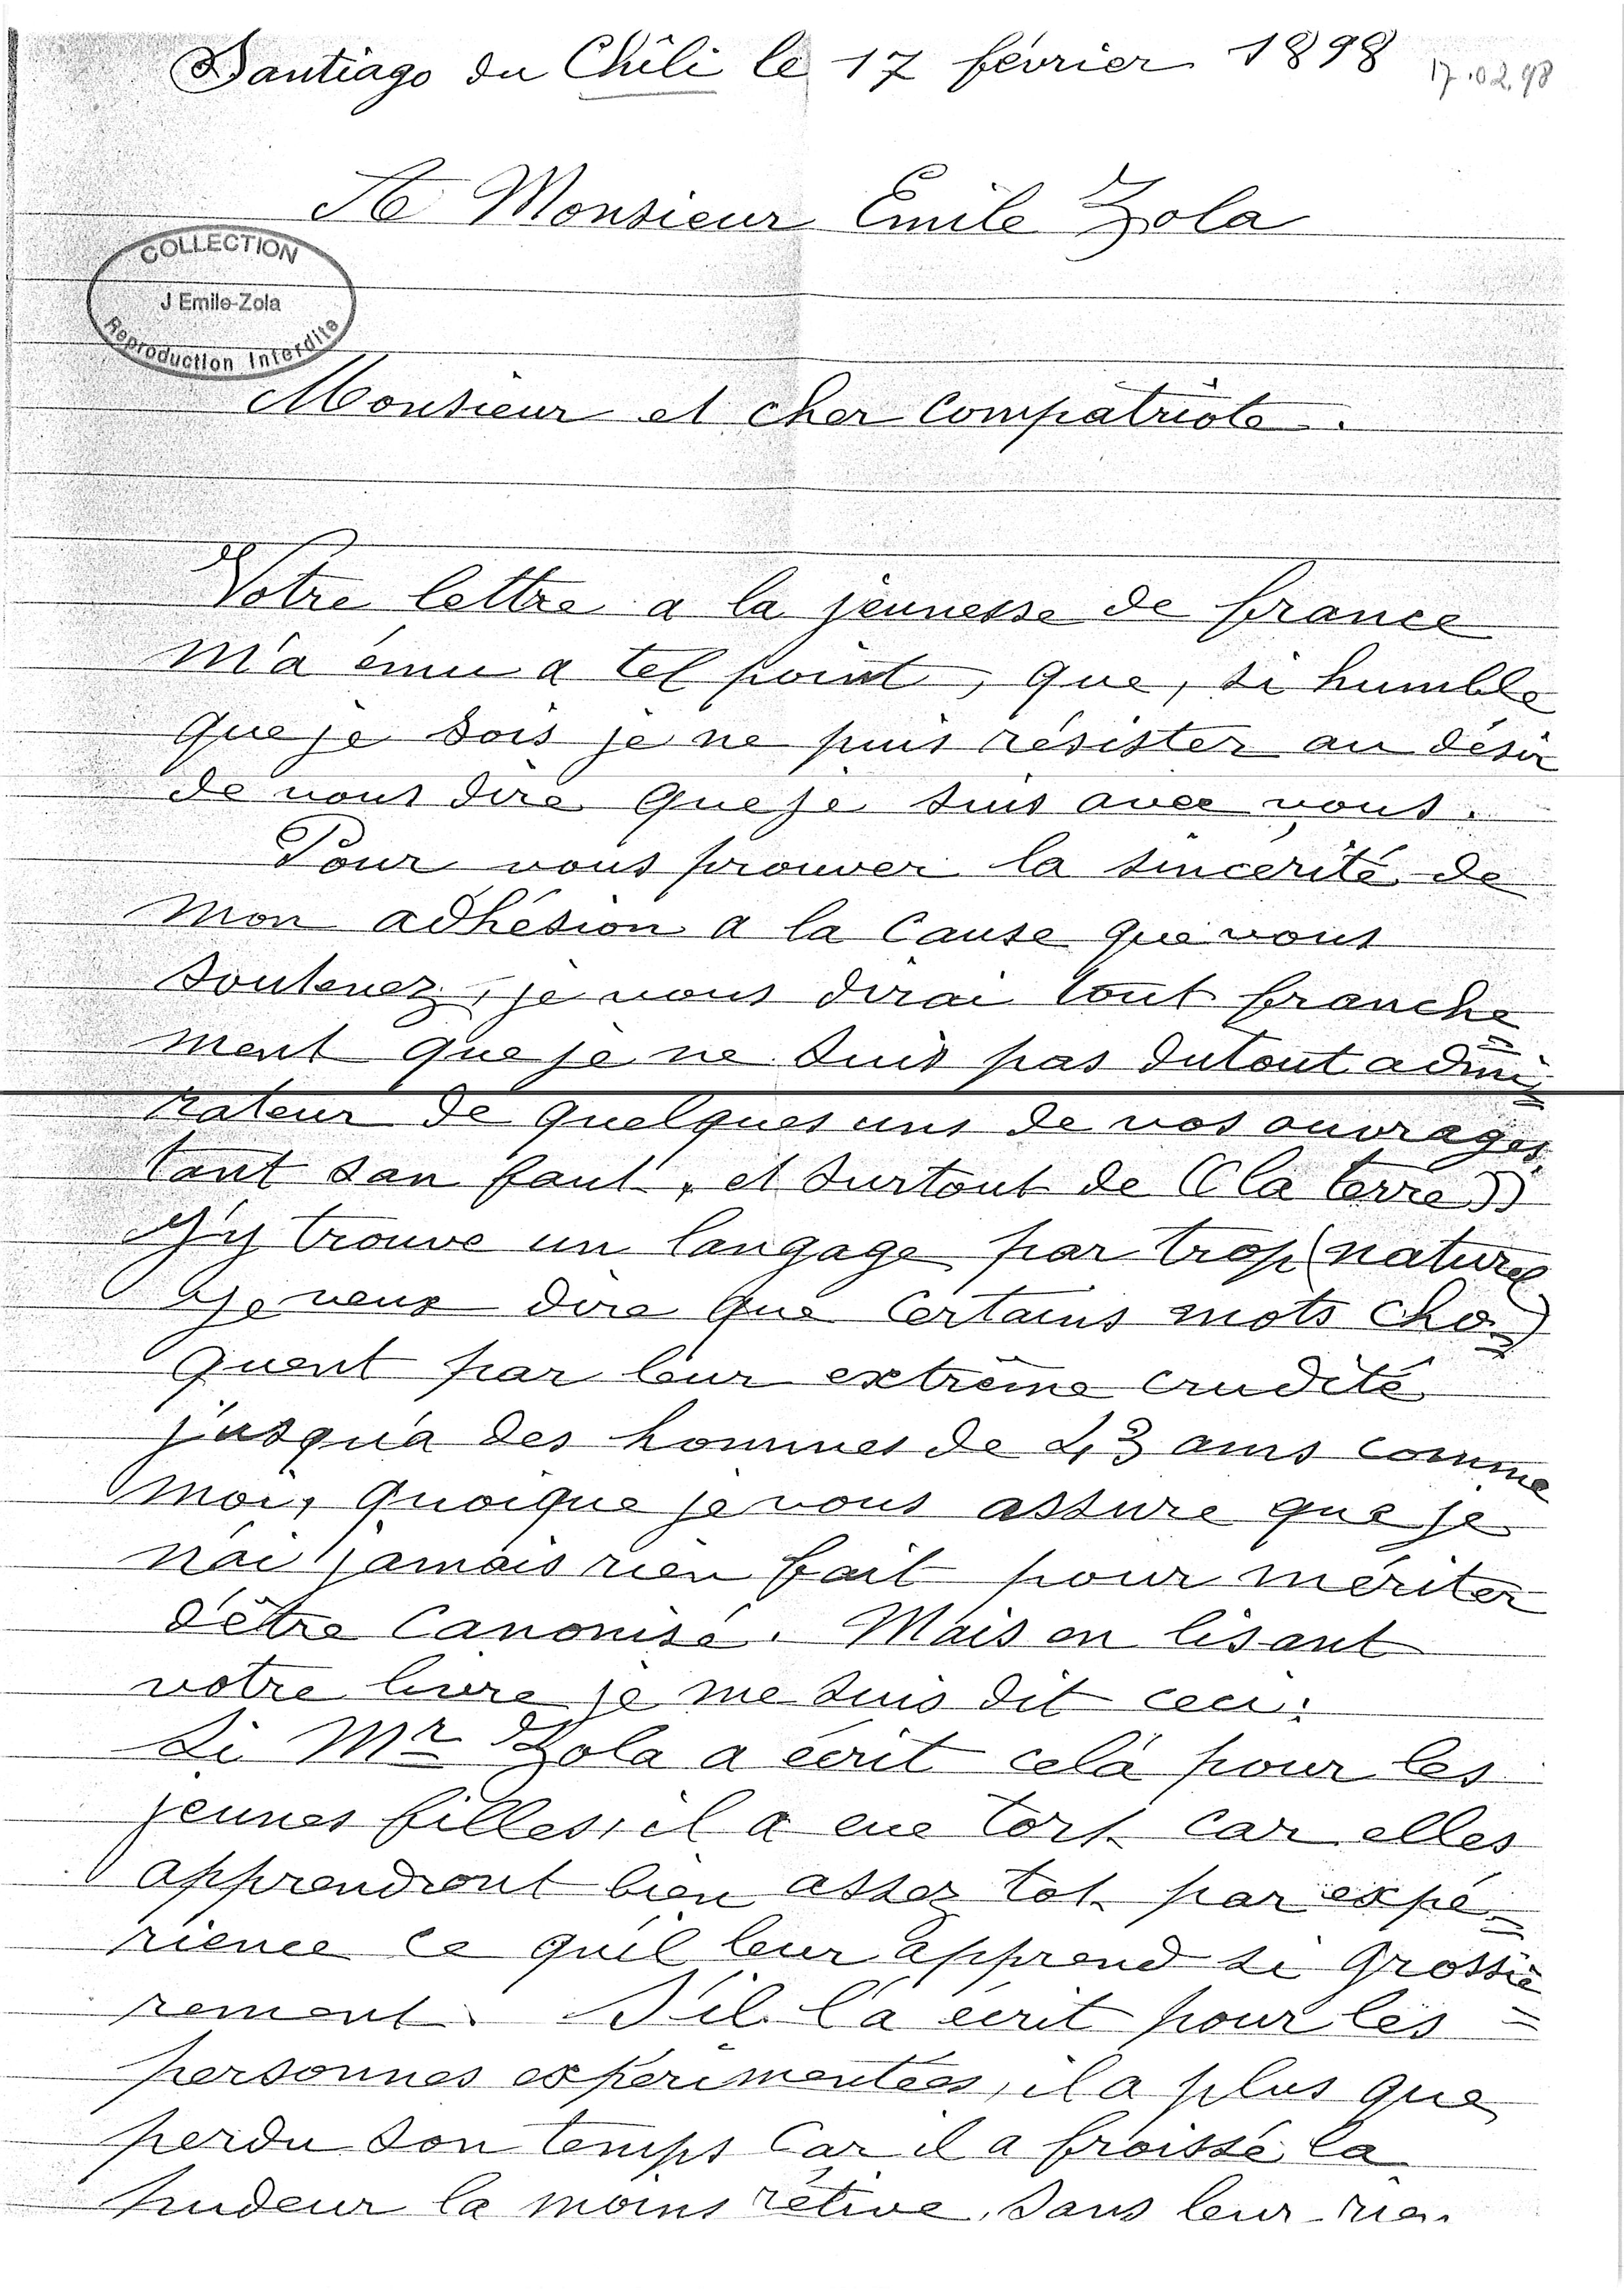 Santiago du Chili le 17 février 1898
17.02.98
A Monsieur Emile Zola
COLLECTION
J Emile-Zola
Reproduction Interdite
Monsieur et cher Compatriote.
Votre lettre a la jeunesse de france
M'a ému a tel point, que, si humble
que je sois je ne puis résister au désir
de vous dire que je suis avec vous.
Pour vous prouver la sincerité de
mon adhésion a la Cause que vous
soutenez, je vous dirai tout franche
ment que je ne suis pas dutout admi=
rateur de quelques uns de vos ouvrages,
tant san faut, et surtout de ((la terre))
J'y trouve un langage par trop (naturel
je veux dire que certains mots cho=)
quent par leur extrême crudité
jusqu'a des hommes de 43 ans comme
moi, quoique je vous assure que je
n'ai jamais rien fait pour mériter
d'être Canonisé. Mais en lisant
votre livre je me suis dit ceci:
Si Mr Zola a écrit celà pour les
jeunes filles, il a eue tort car elles
apprendront bien assez tot par expé=
rience ce qu'il leur apprend si Grossiè
rement. S'il l'a écrit pour les =
personnes expérimentées, il a plus que
perdu son temps Car il a froissé la
pudeur la moins rétive, sans leur rien